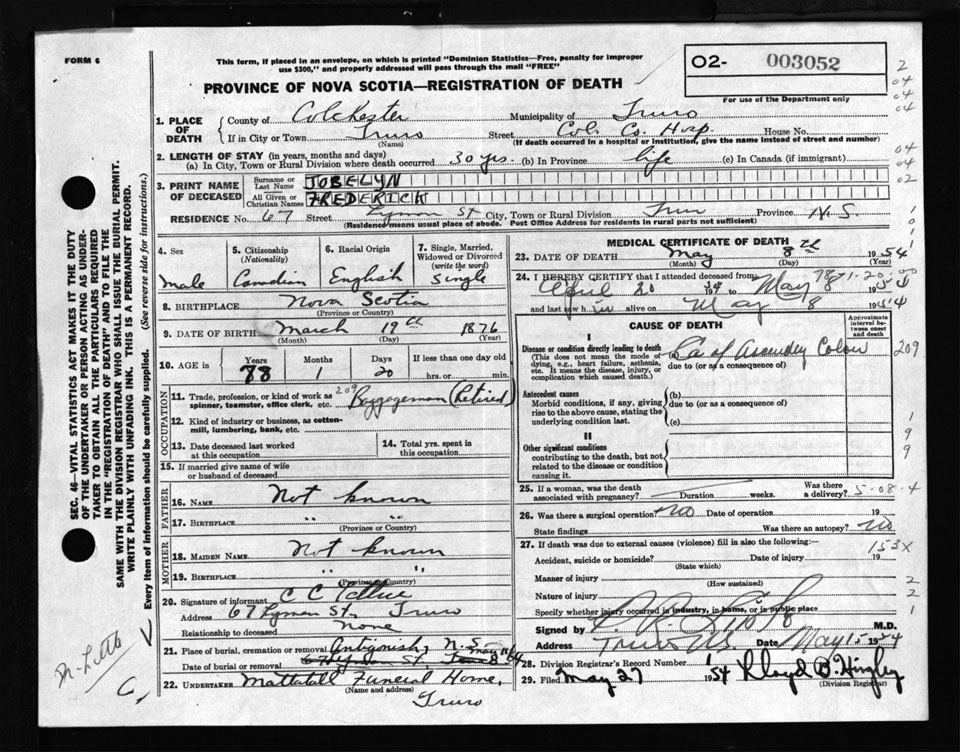 FORM 6
This form, if placed in an envelope, on which is printed "Dominion Statistics—Free, penalty for improper
use $300," and properly addressed will pass through the mail "FREE"
O2- 003052
For use of the Department only
PROVINCE OF NOVA SCOTIA—REGISTRATION OF DEATH
1. PLACE OF DEATH
County of Colchester Municipality of Truro
If in City or Town Truro Street Col. Co. Hosp. House No.
(Name) (If death occurred in a hospital or institution, give the name instead of street and number)
2. LENGTH OF STAY (in years, months and days)
(a) In City, Town or Rural Division where death occurred 30 yrs. (b) In Province life (c) In Canada (if immigrant)
3. PRINT NAME OF DECEASED
Surname or Last Name JOBELYN
All Given or Christian Names FREDERICK
RESIDENCE No. 67 Street Lyman St City, Town or Rural Division Truro Province N.S.
(Residence means usual place of abode. Post Office Address for residents in rural parts not sufficient)
4. Sex
Male
5. Citizenship (Nationality)
Canadian
6. Racial Origin
English
7. Single, Married, Widowed or Divorced (write the word)
Single
8. BIRTHPLACE Nova Scotia
(Province or Country)
9. DATE OF BIRTH March 19th 1876
(Month) (Day) (Year)
10. AGE in Years 78 Months 1 Days 20 If less than one day old
hrs. or min.
OCCUPATION
11. Trade, profession, or kind of work as 209 Baggageman (Retired)
spinner, teamster, office clerk, etc.
12. Kind of industry or business, as cotton-
mill, lumbering, bank, etc.
13. Date deceased last worked
at this occupation
14. Total yrs. spent in
this occupation
15. If married give name of wife
or husband of deceased
FATHER
16. NAME Not known
17. BIRTHPLACE " "
(Province or Country)
MOTHER
18. MAIDEN NAME Not known
19. BIRTHPLACE " "
(Province or Country)
20. Signature of informant C C
Address 67 Lyman St. Truro
Relationship to deceased None
21. Place of burial, cremation or removal Antigonish, N.S.
Date of burial or removal
22. UNDERTAKER Mattatall Funeral Home,
(Name and address)
Truro
MEDICAL CERTIFICATE OF DEATH
23. DATE OF DEATH May 8th 1954
(Month) (Day) (Year)
24. I HEREBY CERTIFY that I attended deceased from:
April 20 1954 May 8 1954
and last saw him alive on May 8 1954
CAUSE OF DEATH
Approximate interval between onset and death
I
Disease or condition directly leading to death
(This does not mean the mode of
dying, e.g., heart failure, asthenia,
etc. It means the disease, injury, or
complication which caused death.)
Ca of Ascending Colon 209
due to (or as a consequence of)
Antecedent causes
Morbid conditions, if any, giving
rise to the above cause, stating the
underlying condition last.
(b)
due to (or as a consequence of)
(c)
II
Other significant conditions
contributing to the death, but not
related to the disease or condition
causing it.
25. If a woman, was the death
associated with pregnancy? Duration weeks. Was there
a delivery? 5-08-4
26. Was there a surgical operation? No Date of operation 19
State findings Was there an autopsy? No
27. If death was due to external causes (violence) fill in also the following: 153X
Accident, suicide or homicide? Date of injury 19
(State which)
Manner of injury
(How sustained)
Nature of injury
Specify whether injury occurred in industry, in home, or in public place
Signed by M.D.
Address Truro N.S. Date May 15 1954
28. Division Registrar's Record Number
29. Filed May 27 1954 Lloyd B. Hingley
(Division Registrar)
SEC. 46—VITAL STATISTICS ACT MAKES IT THE DUTY
OF THE UNDERTAKER OR PERSON ACTING AS UNDER-
TAKER TO OBTAIN ALL THE PARTICULARS REQUIRED
IN THE "REGISTRATION OF DEATH" AND TO FILE THE
SAME WITH THE DIVISION REGISTRAR WHO SHALL ISSUE THE BURIAL PERMIT.
WRITE PLAINLY WITH UNFADING INK. THIS IS A PERMANENT RECORD.
Every item of information should be carefully supplied. (See reverse side for instructions.)